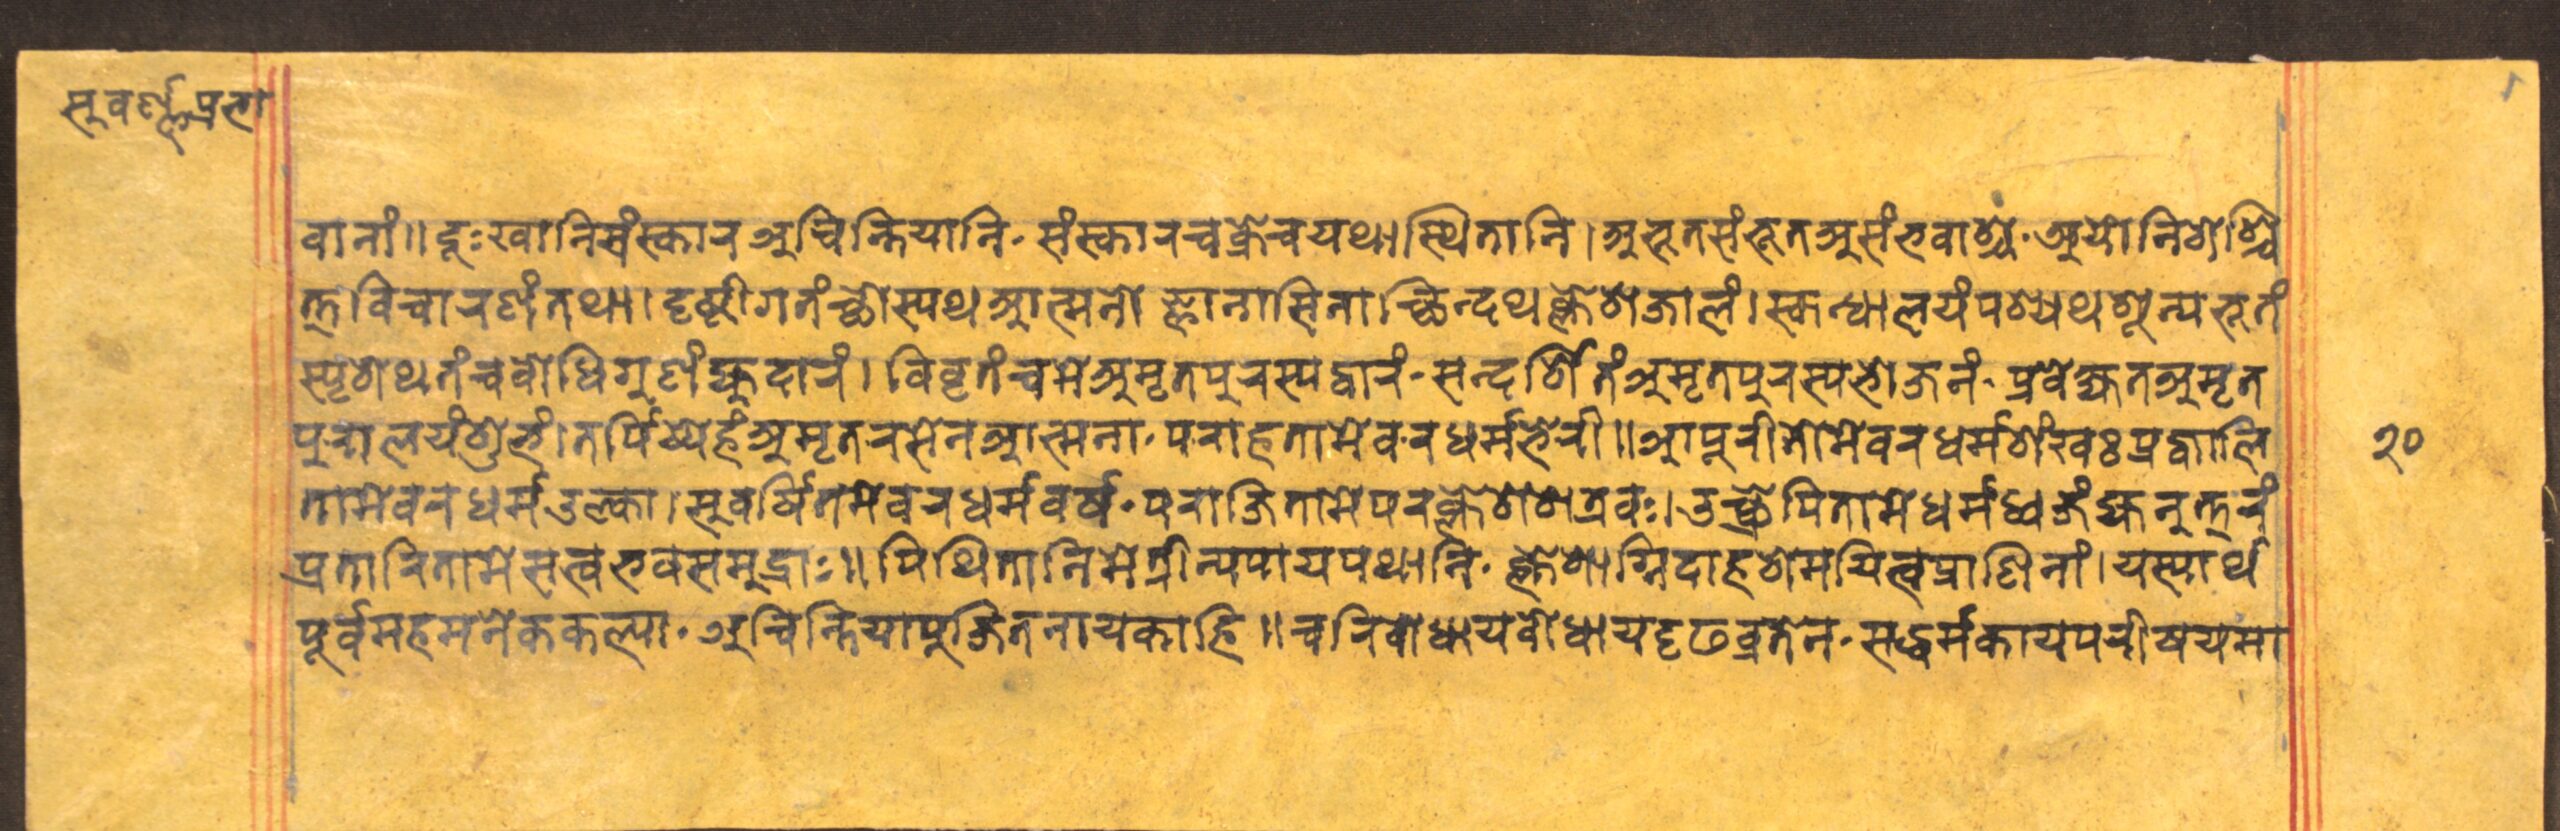 सुवर्ण्णप्रभा
वानां॥दूःखानिसंस्कारअचिन्तियानि·संस्कारचक्रेचयथास्थितानि।अभूतसंभूतअसंभवाश्च·अयोनिशेश्चि
त्तविचारणंतथा।दृष्टीगतंच्छोस्यथआत्मनो ज्ञानासिनाच्छिन्दथक्लेशजालं।स्कन्धालयंपश्यथशून्यभूतं
स्पृशेथतंचबोधिगुणंह्युदारं।विवृतंचमेअमृतपुरस्यद्वारं·सन्दर्शितंअमृतपुरस्यभोजनं·प्रवेक्ष्यतअमृत
पुरालयंशुभं।तर्पिष्येहंअमृतरसेनआत्मना·पराहतामेवरधर्मभेरी॥आपूरीतोमेवरधर्मशंखः प्रज्वालि
तामेवरधर्मउल्का।सुवर्षितमेवरधर्मवर्षं·पराजितामेपरक्लेशशत्रवः।उच्छ्रेपितामेधर्मध्वजंह्यनुत्तरं
प्रतारितामेसत्वभवसमुद्राः॥पिथितानिमेत्रीन्यपायपथानि·क्लेशाग्निदाहशेमयित्वप्राणिनां।यस्यार्थ
पूर्वमहमनेककल्पा·अचिन्तियापुजितनायकाहि॥चरिबोधायबोधायदृढव्रतेन·सद्धर्मकायपरीषयमा
२०